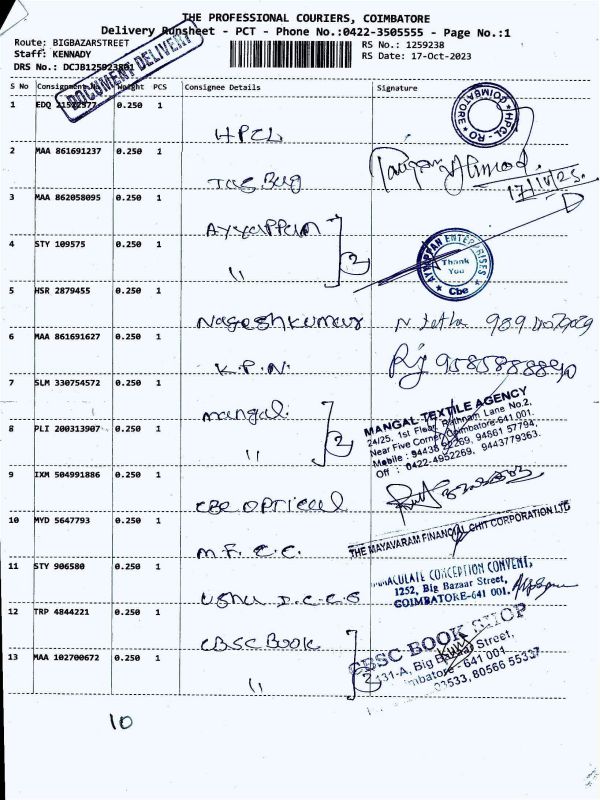 THE PROFESSIONAL COURIERS, COIMBATORE
Delivery Runsheet - PCT - Phone No.:0422-3505555 - Page No.:1
Route: BIGBAZARSTREET
RS No.: 1259238
Staff: KENNADY
RS Date: 17-Oct-2023
DRS No.: DCJB125923801
DOCUMENT DELIVERY
S No Consignment No Weight PCS Consignee Details Signature
1 EDQ 0.250 1 HPCL
COIMBATORE HPCL - RO
2 MAA 861691237 0.250 1
3 MAA 862058095 0.250 1 Ayyappan
4 STY 109575 0.250 1 " 2
AYYAPPAN ENTERPRISES Thank You Cbe
5 HSR 2879455 0.250 1 Nageshkumar
6 MAA 861691627 0.250 1 K.P.N. 9585888890
7 SLM 330754572 0.250 1 mangal.
8 PLI 200313907 0.250 1 " 2
MANGAL TEXTILE AGENCY
24/25, 1st Floor, Rathnam Lane No.2,
Near Five Corner, Coimbatore-641 001.
Mobile : 94438 22269, 94861 57794,
Off : 0422-4952269, 9443779363.
9 IXM 504991886 0.250 1 CBE OPTICAL
10 MYD 5647793 0.250 1 M.F.C.C.
THE MAYAVARAM FINANCIAL CHIT CORPORATION LTD
11 STY 906580 0.250 1
IMMACULATE CONCEPTION CONVENT,
1252, Big Bazaar Street,
COIMBATORE-641 001.
12 TRP 4844221 0.250 1 CBSC BOOK
13 MAA 102700672 0.250 1 " 2
CBSC BOOK SHOP
131-A, Big Bazaar Street,
Coimbatore - 641 001
03533, 80566 55337
10